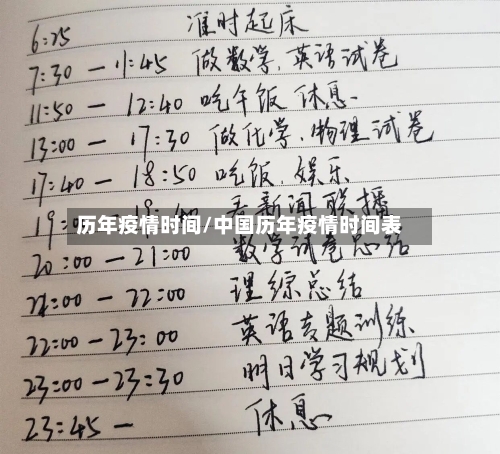 6:25 准时起床
7:30 — 11:45 做数学,英语试卷
11:50 — 12:40 吃午饭 休息.
13:00 — 17:30 做化学.物理试卷
17:40 — 18:50 吃饭.娱乐
19: 看新闻联播
历年疫情时间/中国历年疫情时间表
20:00 — 21:00 数学试卷总结
21:00 — 22:00 理综总结
22:00 — 23:00 英语专题训练
23:00 — 23:30 明日学习规划
23:45 — 休息